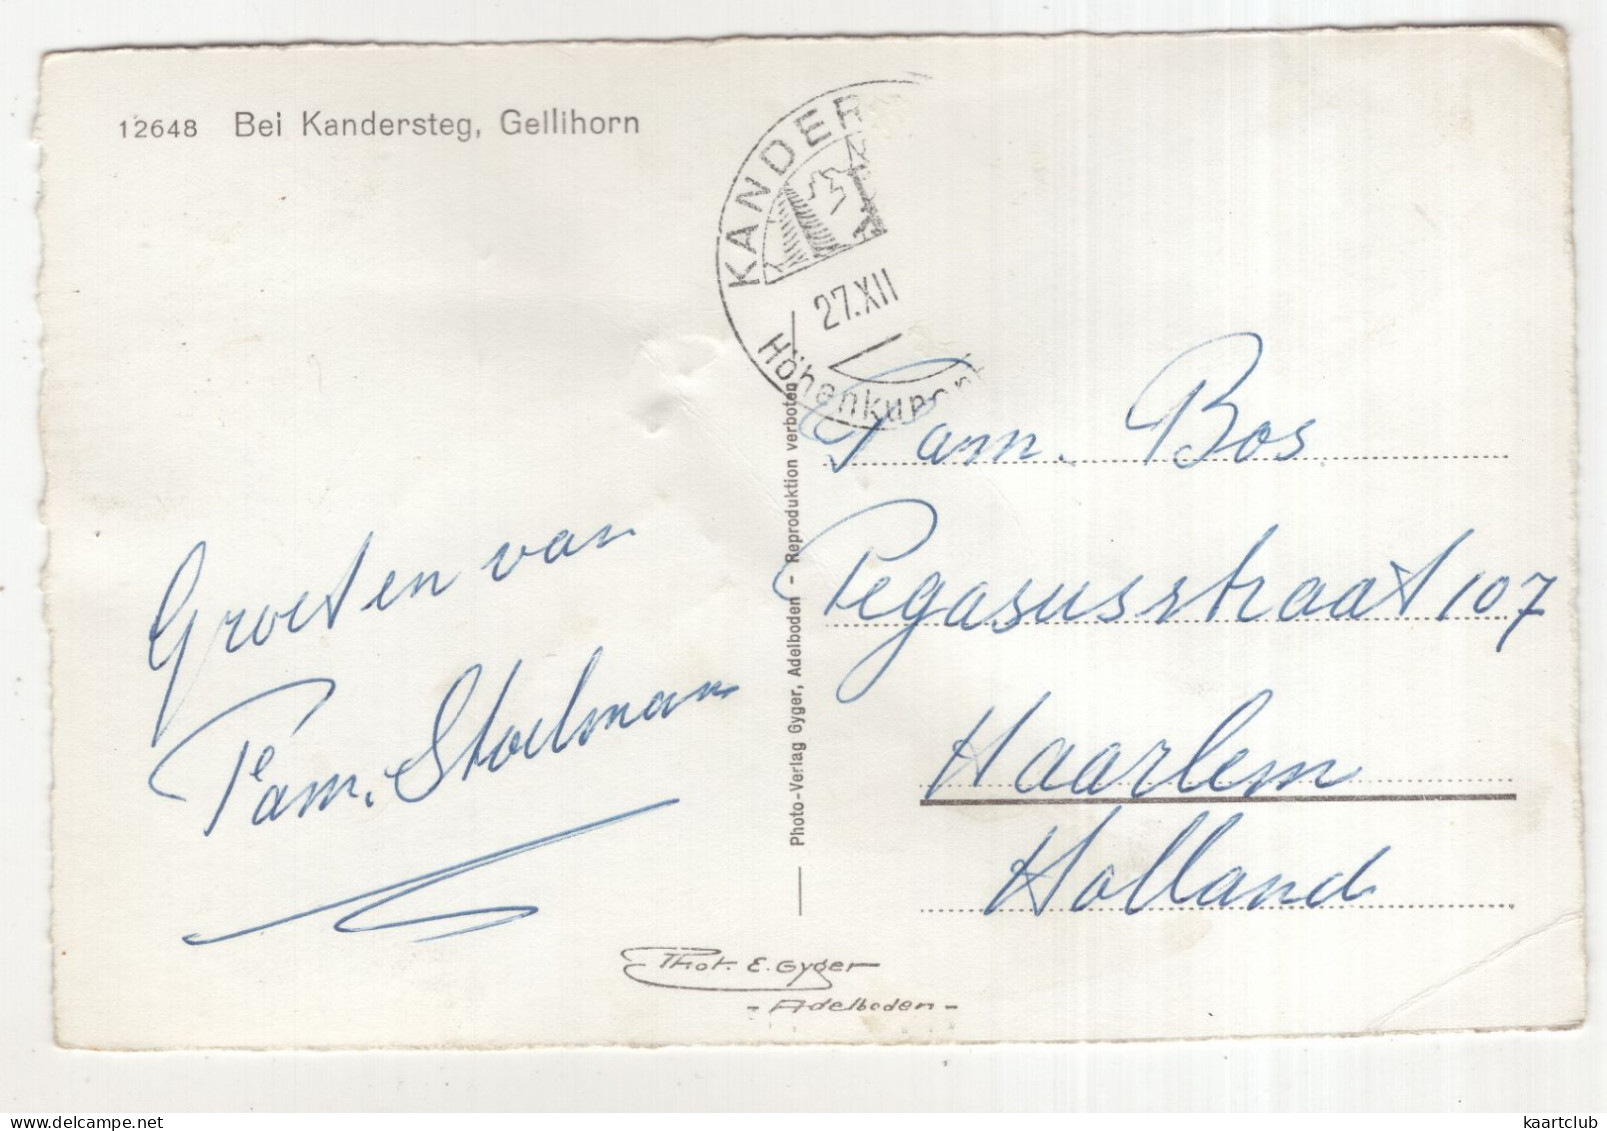 12648 Bei Kandersteg, Gellihorn
KANDER
27.XII
Höhenkuror
Groeten van
Fam. Stoelman
Photo-Verlag Gyger, Adelboden - Reproduktion verboten
Fam. Bos.
Pegasusstraat 107
Haarlem
Holland
Phot. E. Gyger
- Adelboden -
kaartclub